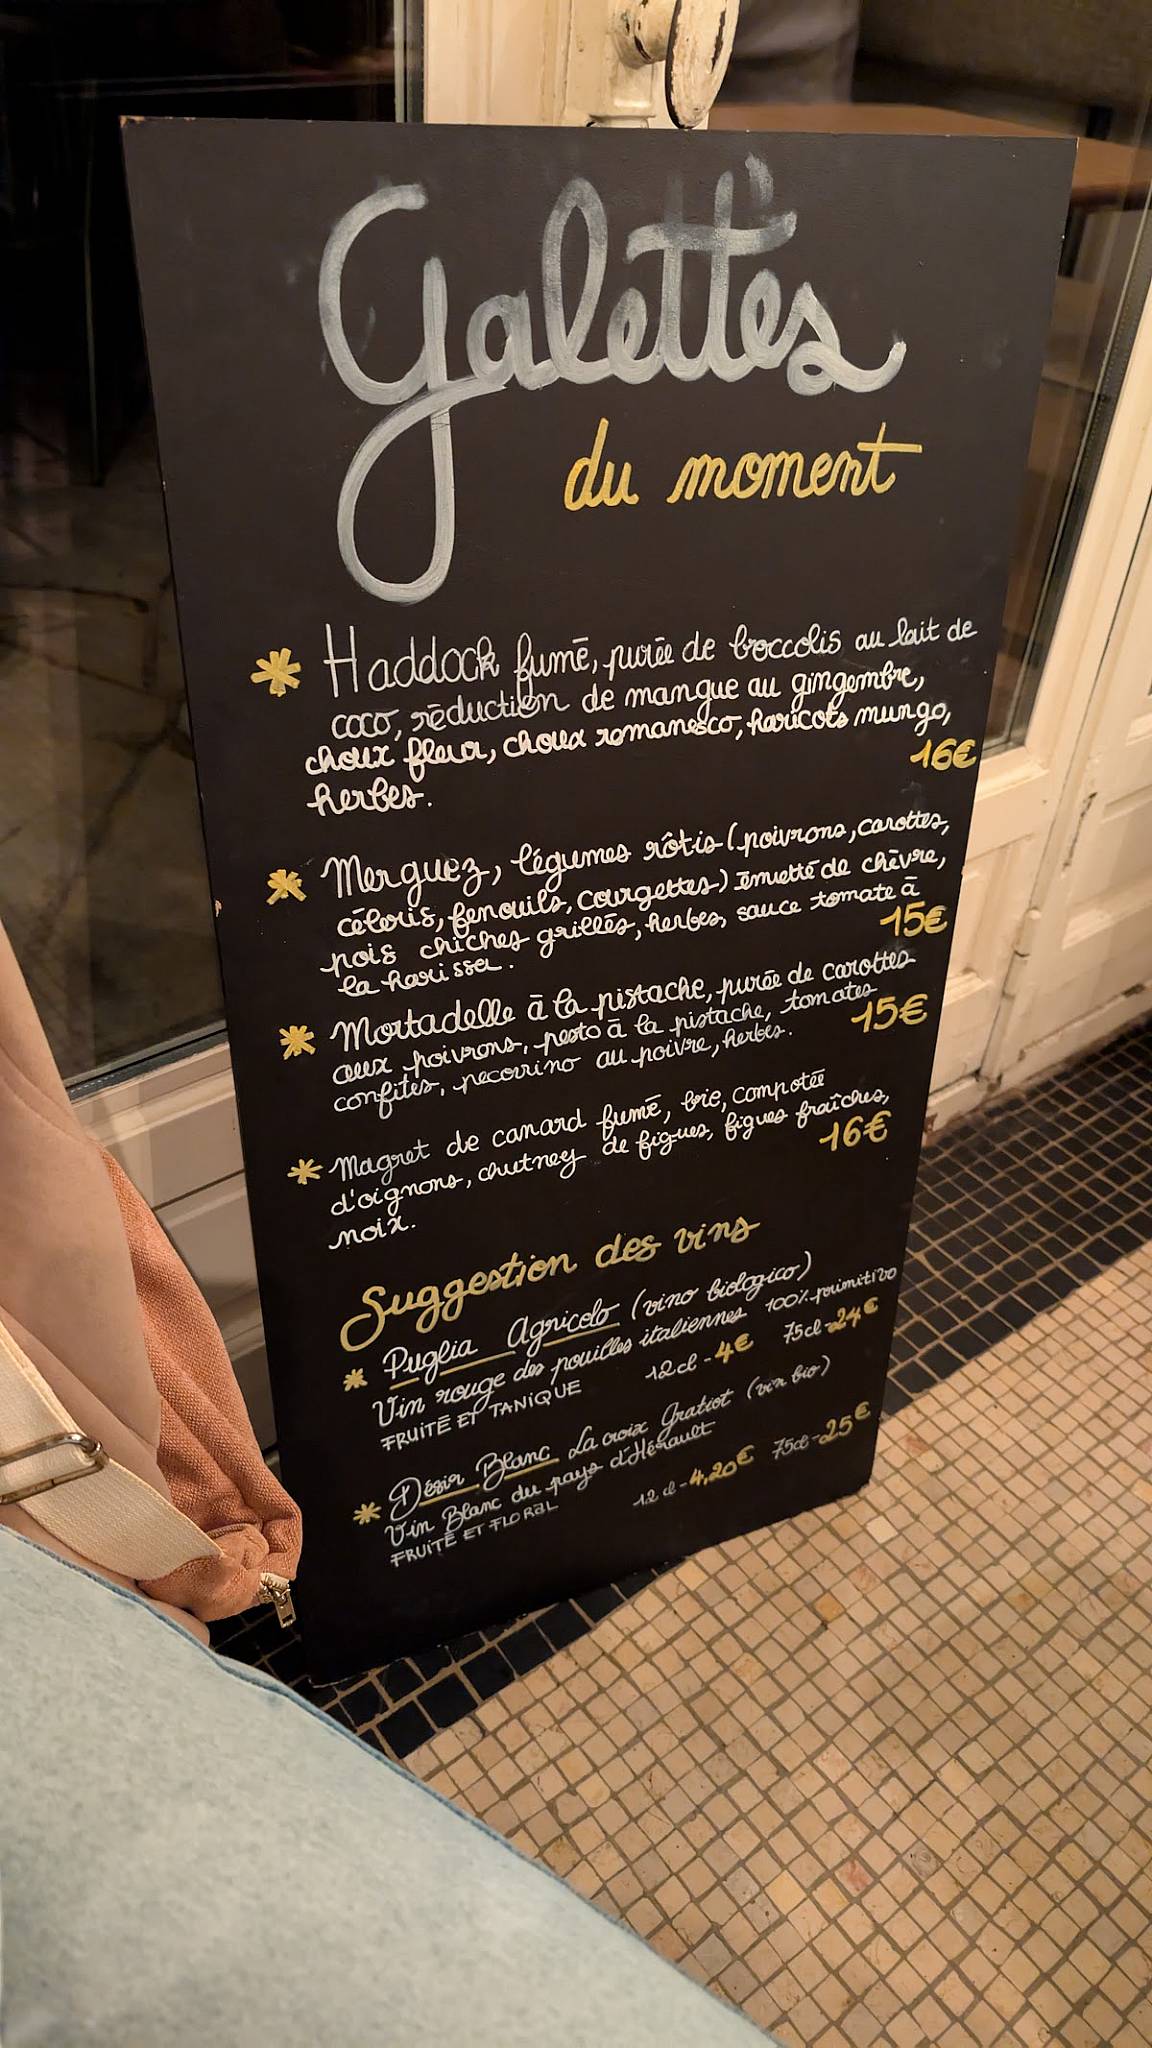 Galettes
du moment
* Haddock fumé, purée de broccolis au lait de
coco, réduction de mangue au gingembre,
choux fleur, choux romanesco, haricots mungo,
herbes. 16€
* Merguez, légumes rôtis (poivrons, carottes,
céleris, fenouils, courgettes) émietté de chèvre,
pois chiches grillés, herbes, sauce tomate à
la harissa. 15€
* Mortadelle à la pistache, purée de carottes
aux poivrons, pesto à la pistache, tomates
confites, pecorino au poivre, herbes. 15€
* Magret de canard fumé, brie, compotée
d'oignons, chutney de figues, figues fraîches,
noix. 16€
Suggestion des vins
* Puglia Agricolo (vino biologico)
Vin rouge des pouilles italiennes 100% primitivo
FRUITÉ ET TANIQUE 12cl - 4€ 75cl - 24€
* Désir Blanc La croix Gratiot (vin bio)
Vin Blanc du pays d'Hérault
FRUITÉ ET FLORAL 12cl - 4,20€ 75cl - 25€